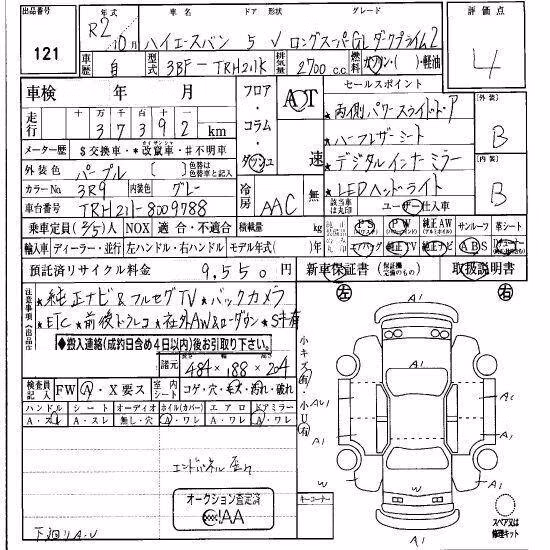 出品番号
121
年式
R2年10月
車名 ドア 形状 グレード
ハイエースバン 5 V ロングスーパーGL ダークプライム2
評価点
4
車歴 自
型式 3BF-TRH211K
排気量 2700 c.c.
燃料 ガソリン・( )・軽油
車検 年 月
フロア・コラム・ダッシュ
AOT
速
セールスポイント
★両側パワースライドドア
★ハーフレザーシート
★デジタルインナーミラー
★LEDヘッドライト
外装 B
内装 B
走行 十万千百十一
37392 km
メーター歴 $交換車・*改竄車・#不明車
外装色 パープル
色替は色替車と記入
カラーNo 3R9 内装色 グレー
冷房 AAC
無
該当車は丸印
ユーザー仕入車
車台番号 TRH211-8009788
乗車定員(5/5)人 NOX 適合・不適合 積載量 kg
PS PW 純正AW サンルーフ 革シート
輸入車 ディーラー・並行 左ハンドル・右ハンドル モデル年式( )年
エアバッグ 純正TV 純正ナビ ABS
預託済リサイクル料金 9,550円
新車保証書 (保証継承交換のもの) 取扱説明書
注意事項(出品店)
★純正ナビ&フルセグTV ★バックカメラ
★ETC ★前後ドラレコ ★社外AW&ローダウン ★S半革
◆搬入連絡(成約日含め4日以内)後お引取り下さい。
諸元 長 484 × 幅 188 × 高さ 204
検査員記入 FW A・X要ス 室内シート コゲ・穴・毛・汚れ・破れ
ハンドル シート オーディオ ホイル(カバー) エアロ ドアミラー
A・スレ A・スレ 無し・穴 A・ワレ A・ワレ A・ワレ
エンドパネル歪ミ
オークション査定済
JAA
下廻りA.U
小キズ有
小U有
キーコーナー
左 右
A1
A1
AU1
A1
W
A1
W
A1
A1
スペア又は修理キット